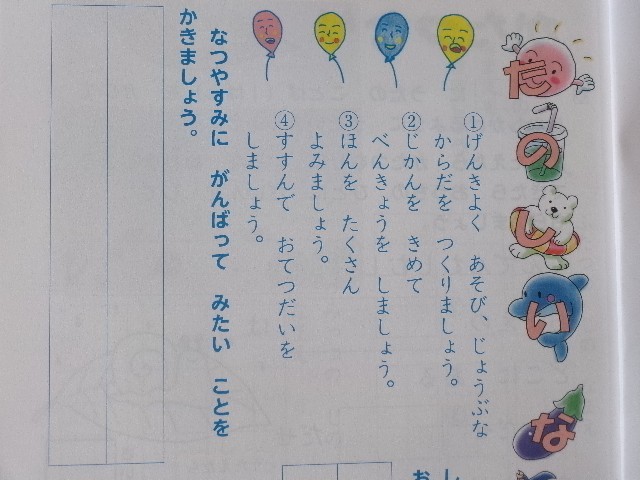 たのしいな
①げんきよく　あそび、じょうぶな
からだを　つくりましょう。
②じかんを　きめて
べんきょうを　しましょう。
③ほんを　たくさん
よみましょう。
④すすんで　おてつだいを
しましょう。
なつやすみに　がんばって　みたい　ことを
かきましょう。